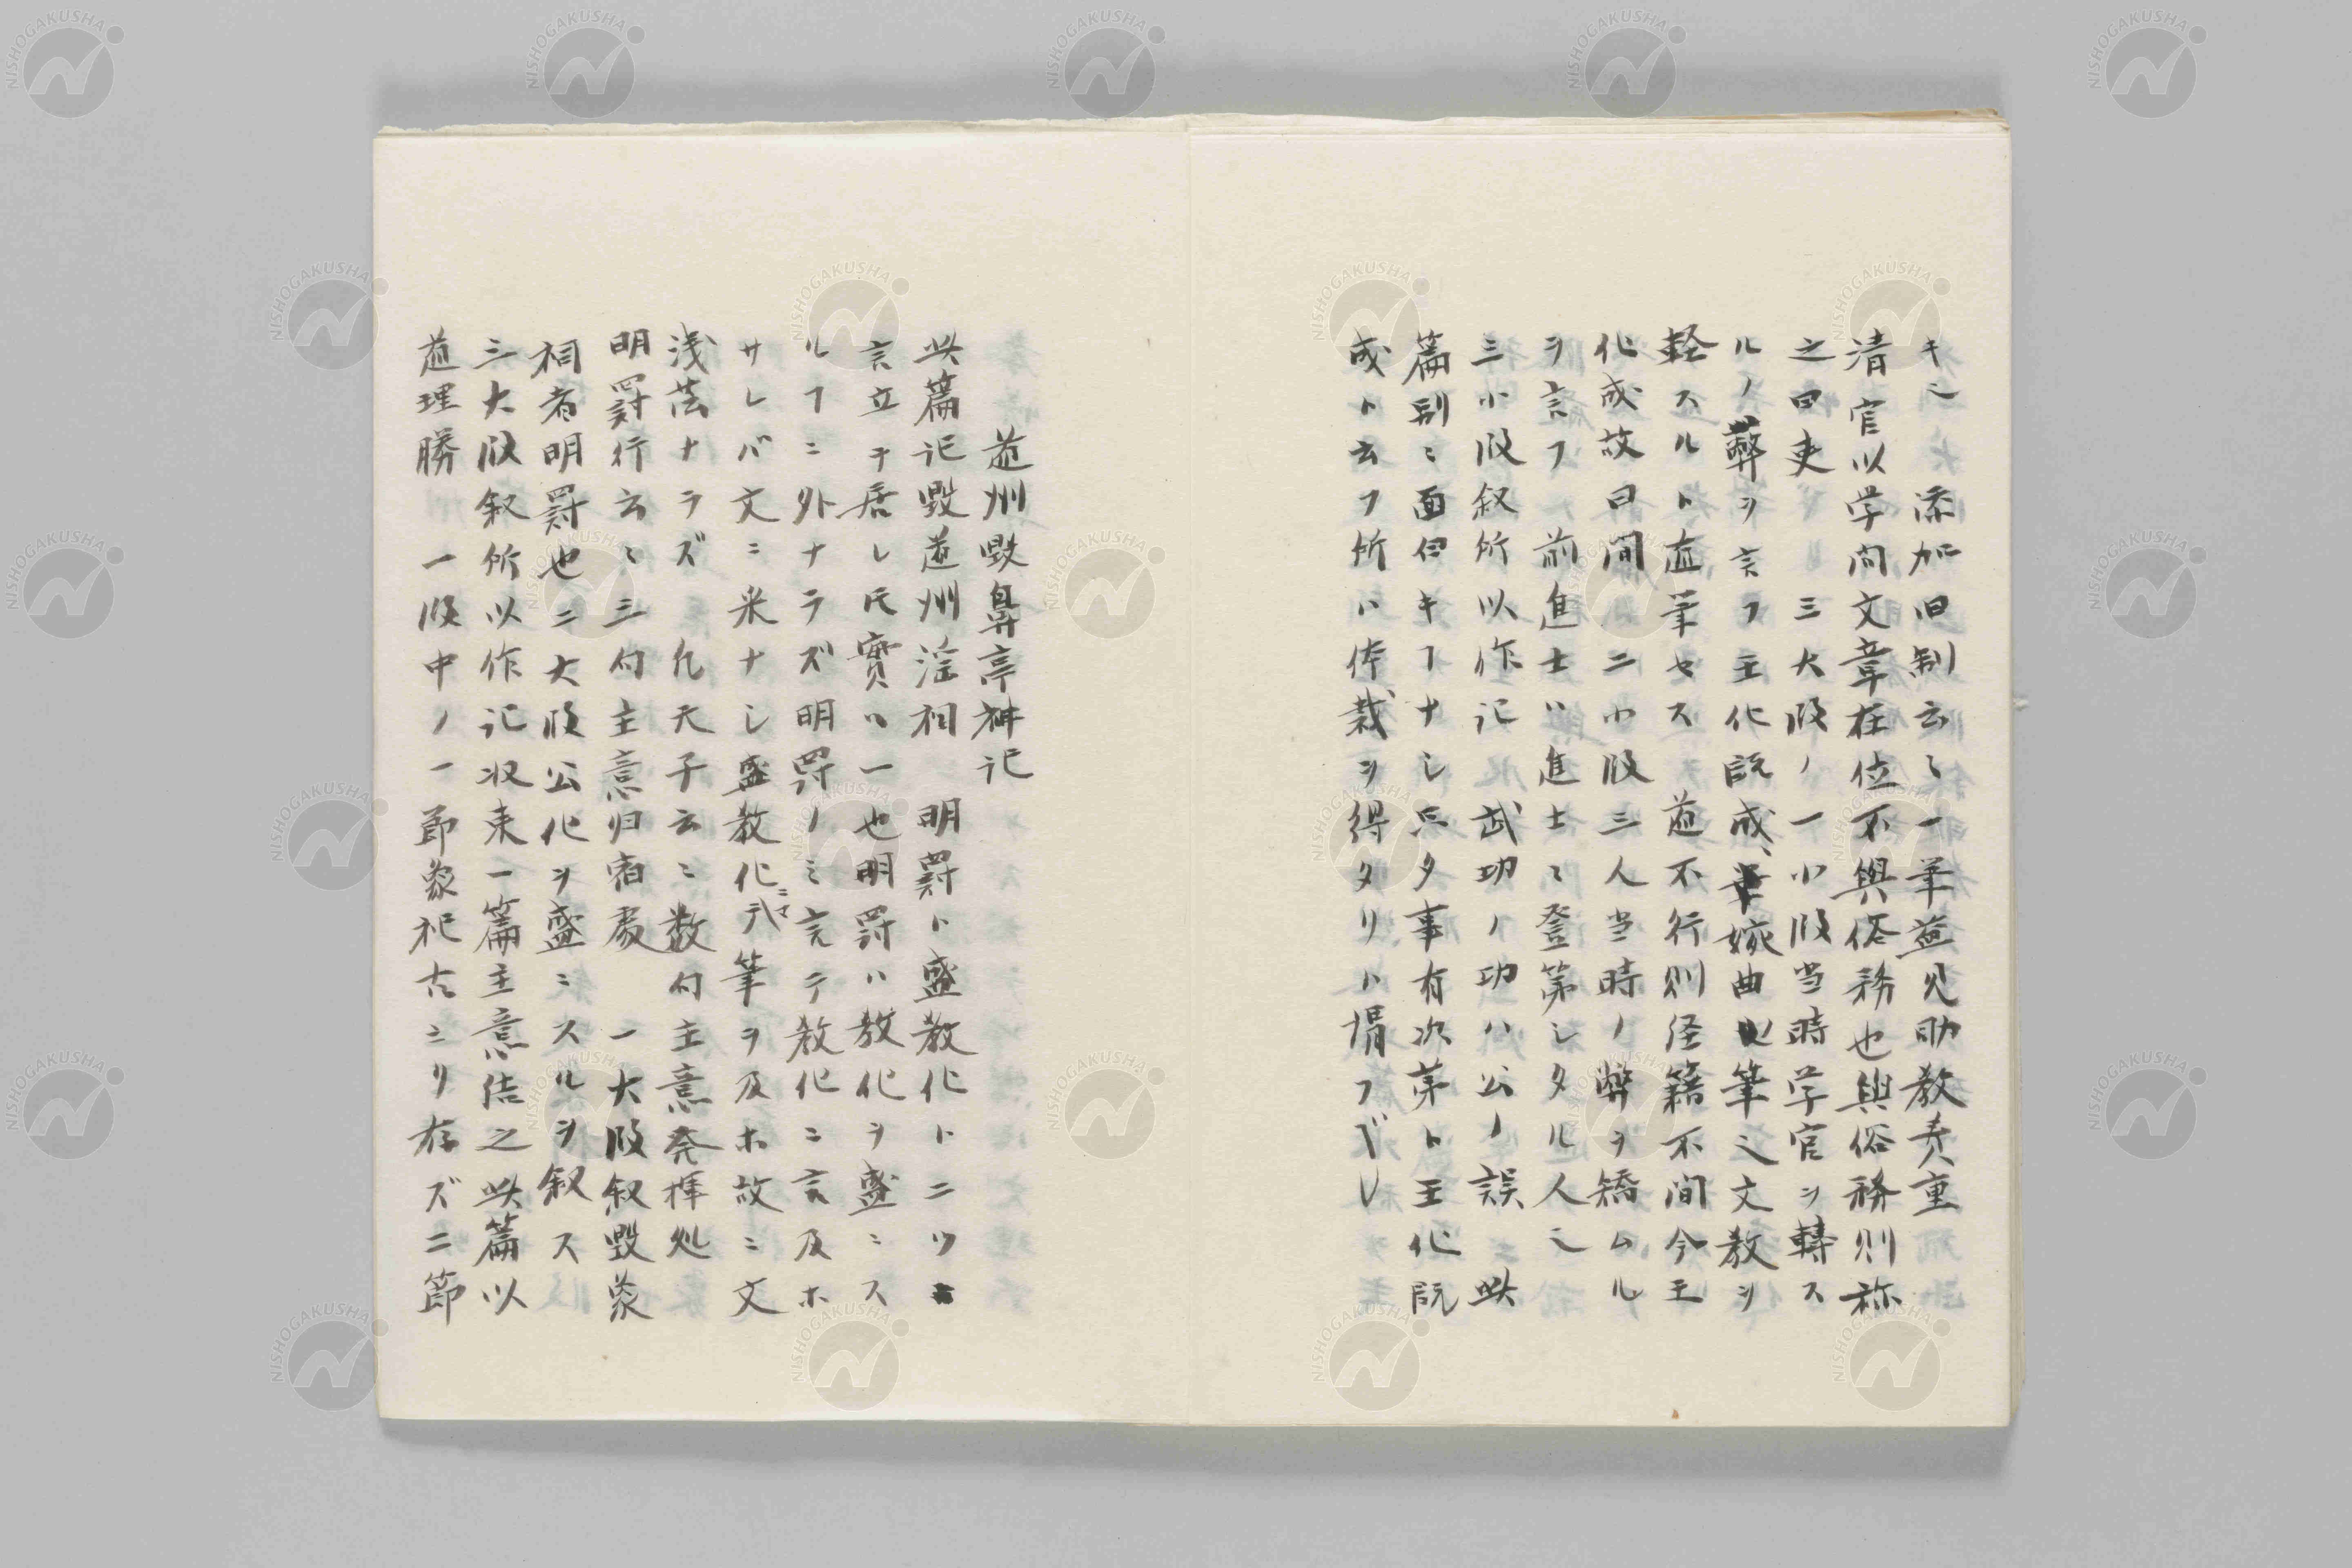 キ之　添加旧制云〻一筆益見助教責重
清官以学問文章在位不與俗務也與俗務則称
之曰吏　三大股ノ一小股当時学官ヲ轉ス
ルノ弊ヲ言フ王化既成、筆婉曲筆之文教ヲ
軽スルト直筆セス　道不行則経籍不間今王
化成故曰間　二小股三人当時ノ弊ヲ矯ムル
ヲ言フ　前進士ハ進士〻登第シタル人之
三小股叙所以作記　武功ノ功ハ公ノ誤　此
篇別ニ面白キヿナシ只タ事有次第ト王化既
成ト云フ所ハ体裁ヲ得タリト謂フベし
道州毀鼻亭神記
此篇記毀道州淫祠　明罸ト盛教化ト二ツ
言立テ居レ氏實ハ一也明罸ハ教化ヲ盛ニス
ルヿニ外ナラズ明罸ノミ言テ教化ニ言及ホ
サレバ文ニ米ナし盛教化ニマテ筆ヲ及ホ故ニ文
浅薄ナラズ　凡天子云〻数句主意発揮処
明罸行云〻三句主意归宿處　一大股叙毀象
祠者明罸也二大股公化ヲ盛ニスルヲ叙ス
三大股叙所以作記収束一篇主意結之此篇以
道理勝　一股中ノ一節象祀古ニリ存ズ二節
NISHOGAKUSHA